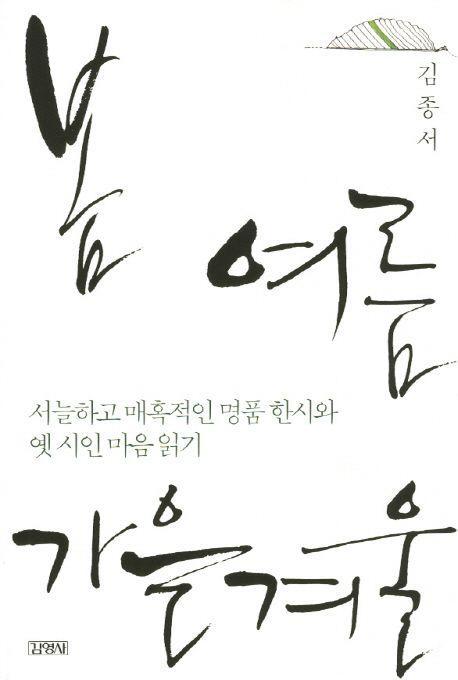 봄
여름
김종서
서늘하고 매혹적인 명품 한시와
옛 시인 마음 읽기
가을겨울
김영사